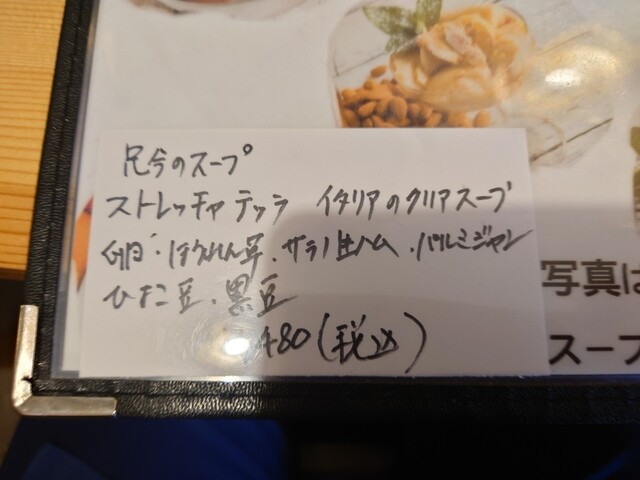 只今のスープ
ストレッチャテッラ イタリアのクリアスープ
卵・ほうれん草・サラノ生ハム・パルミジャン
ひたし豆、黒豆
480(税込)
写真は
スープ